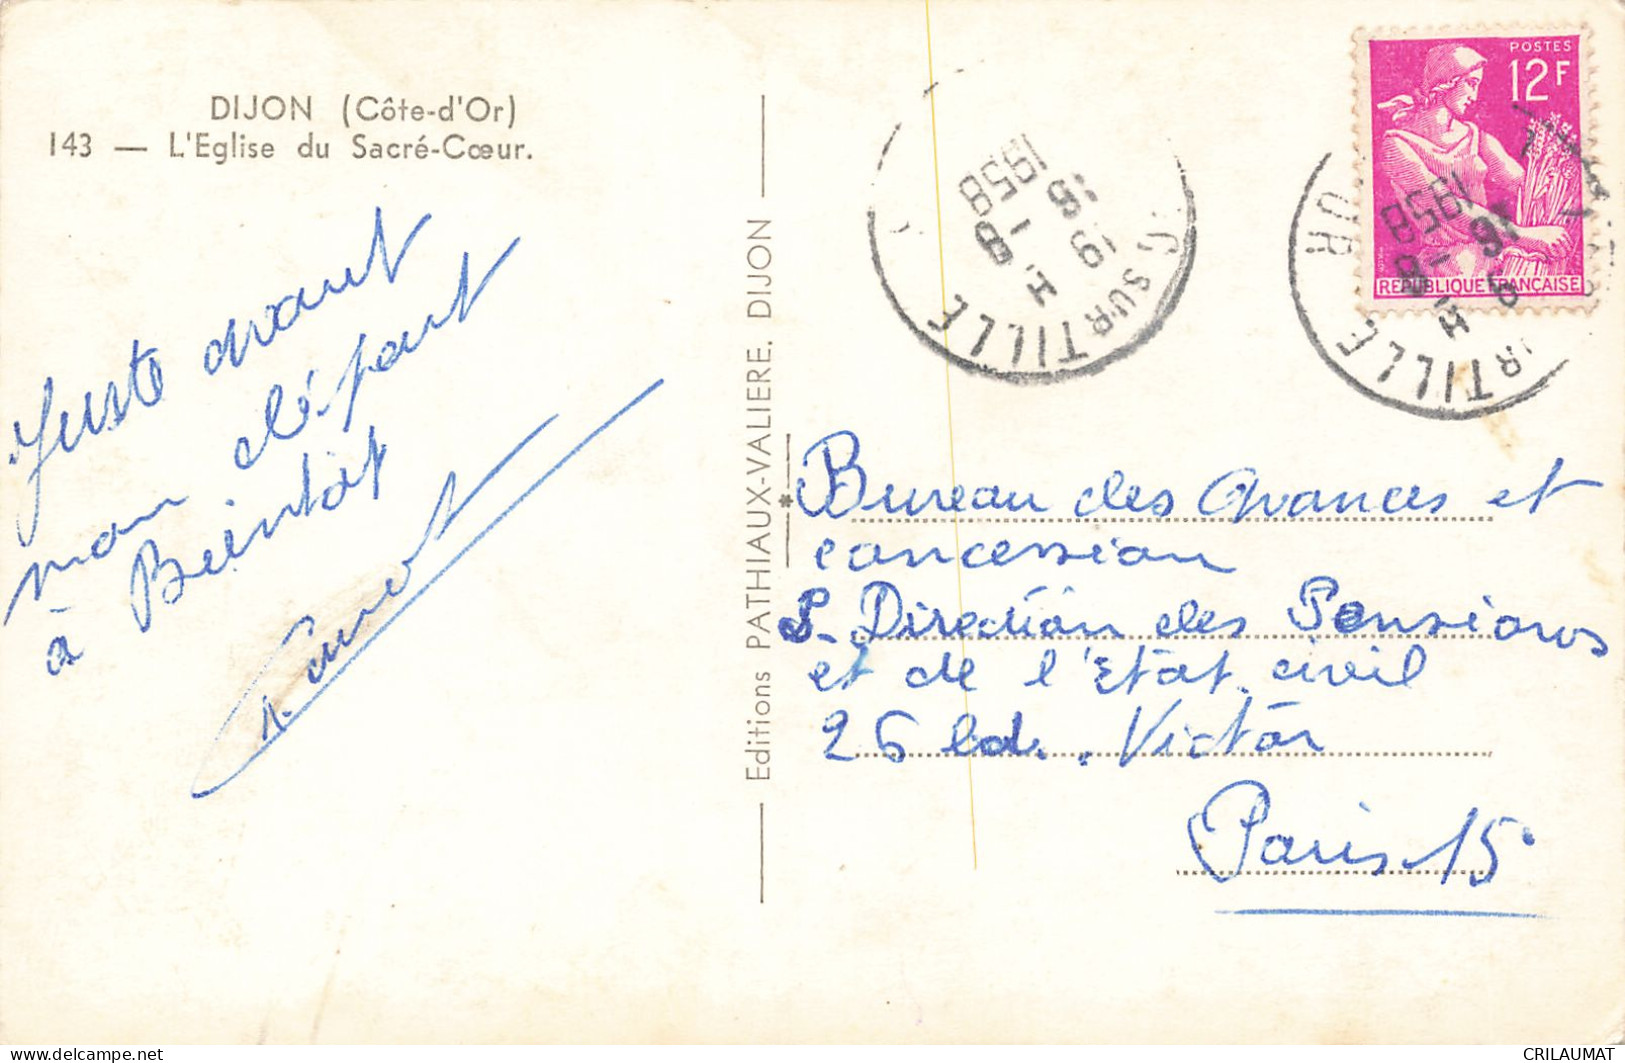 DIJON (Côte-d'Or)
143 — L'Eglise du Sacré-Cœur.
Juste avant
mon départ
à Beintôt
Editions PATHIAUX-VALIERE, DIJON
SUR TILLE
19 H
16 - 8
1958
POSTES
12F
REPUBLIQUE FRANÇAISE
UR TILLE
H
16 - 8
1958
Bureau des Avances et
concession
S. Direction des Pensions
et de l'Etat civil
26 bd. Victor
Paris 15°
delcampe.net
CRILAUMAT